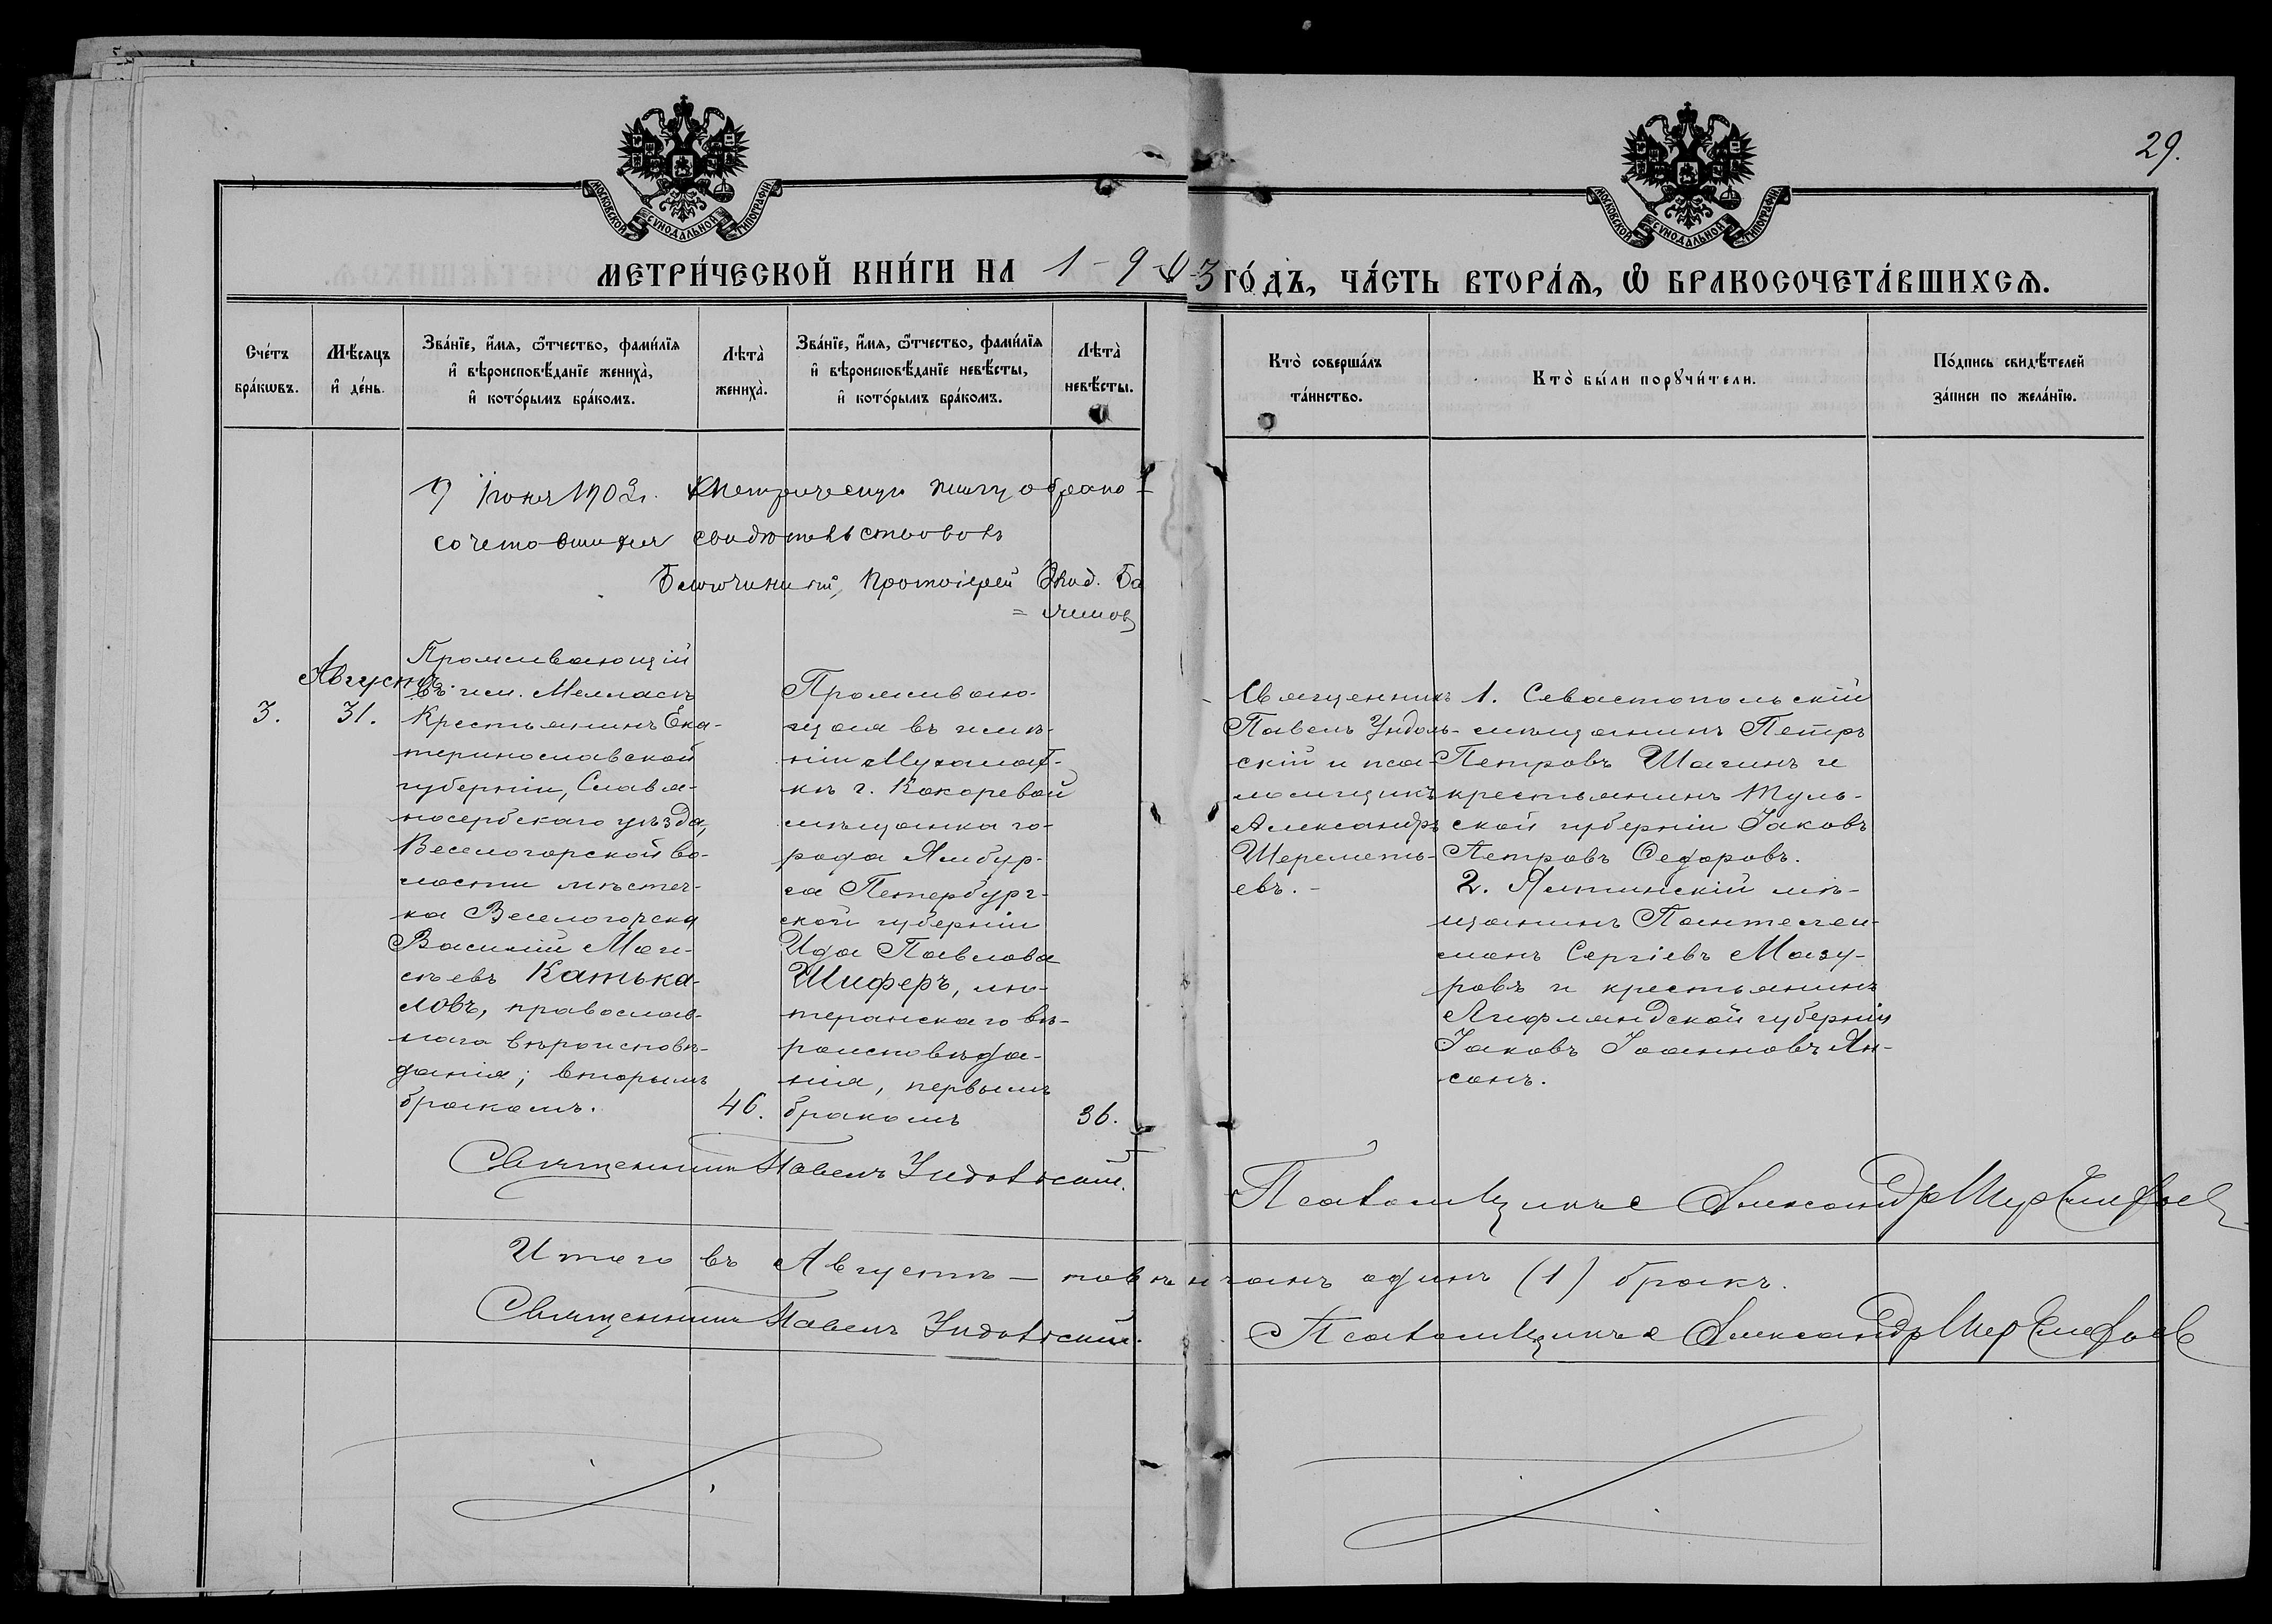 29.
МОСКОВСКОЙ СѴНОДАЛЬНОЙ ТИПОГРАФІИ
МОСКОВСКОЙ СѴНОДАЛЬНОЙ ТИПОГРАФІИ
МЕТРИ́ЧЕСКОЙ КНИ́ГИ НА 1-9-0-3 ГО́ДЪ, ЧА́СТЬ ВТОРА́Ѧ, Ѽ БРАКОСОЧЕТА́ВШИХСѦ.
Сче́тъ
бра́кѡвъ.
Мѣ́сяцъ
и҆ де́нь.
Зва́нїе, и҆́мя, ѻ҆́тчество, фами́лїя
и҆ вѣроисповѣ́данїе жениха̀,
и҆ кото́рымъ бра́комъ.
Лѣта̀
жениха̀.
Зва́нїе, и҆́мя, ѻ҆́тчество, фами́лїя
и҆ вѣроисповѣ́данїе невѣ́сты,
и҆ кото́рымъ бра́комъ.
Лѣта̀
невѣ́сты.
Кто̀ соверша́лъ
та́инство.
Кто̀ бы́ли порꙋчи́тели.
По́дпись свидѣ́телей
за́писи по жела́нїю.
Іюня 1903г. Метрическую книгу о брако-
сочетавшихся свидѣтельствовалъ
Благочинный, Протоіерей
3.
Августъ
31.
Проживающій
въ им. Мелласъ
Крестьянинъ Ека-
теринославской
губерніи, Славя-
носербскаго уѣзда,
Веселогорской во-
лости мѣстеч-
ка Веселогорска
Василій Мои-
сѣевъ Катька-
ловъ, православ-
наго вѣроисповѣ-
данія; вторымъ
бракомъ.
46.
Проживаю-
щая въ имѣ-
ніи Мухалат-
кѣ г. Кокоревой
мѣщанка го-
рода Ямбур-
га Петербург-
ской губерніи
Ида Павлова
Шиферъ, лю-
теранскаго вѣ-
роисповѣда-
нія, первымъ
бракомъ
36.
Священникъ
Павелъ Ундоль-
скій и пса-
ломщикъ
Александръ
Шереметь-
евъ.-
1. Севастопольскій
мѣщанинъ Петръ
Петровъ Шагинъ и
крестьянинъ Туль-
ской губерніи Іаковъ
Петровъ Ѳедоровъ.
2. Ялтинскій мѣ-
щанинъ Пантелеи-
монъ Сергіевъ Мазу-
ровъ и крестьянинъ
Лифляндской губерніи
Іаковъ Іоанновъ Ян-
сонъ.
Священникъ Павелъ Ундольскій.
Псаломщикъ Александр Шереметьев
Итого въ Августѣ — повѣнчанъ одинъ (1) бракъ.
Священникъ Павелъ Ундольскій.
Псаломщикъ Александр Шереметьев